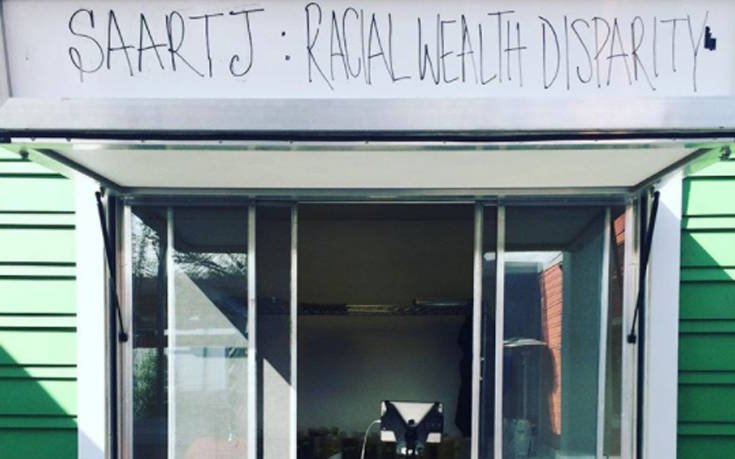 SAARTJ : RACIAL WEALTH DISPARITY